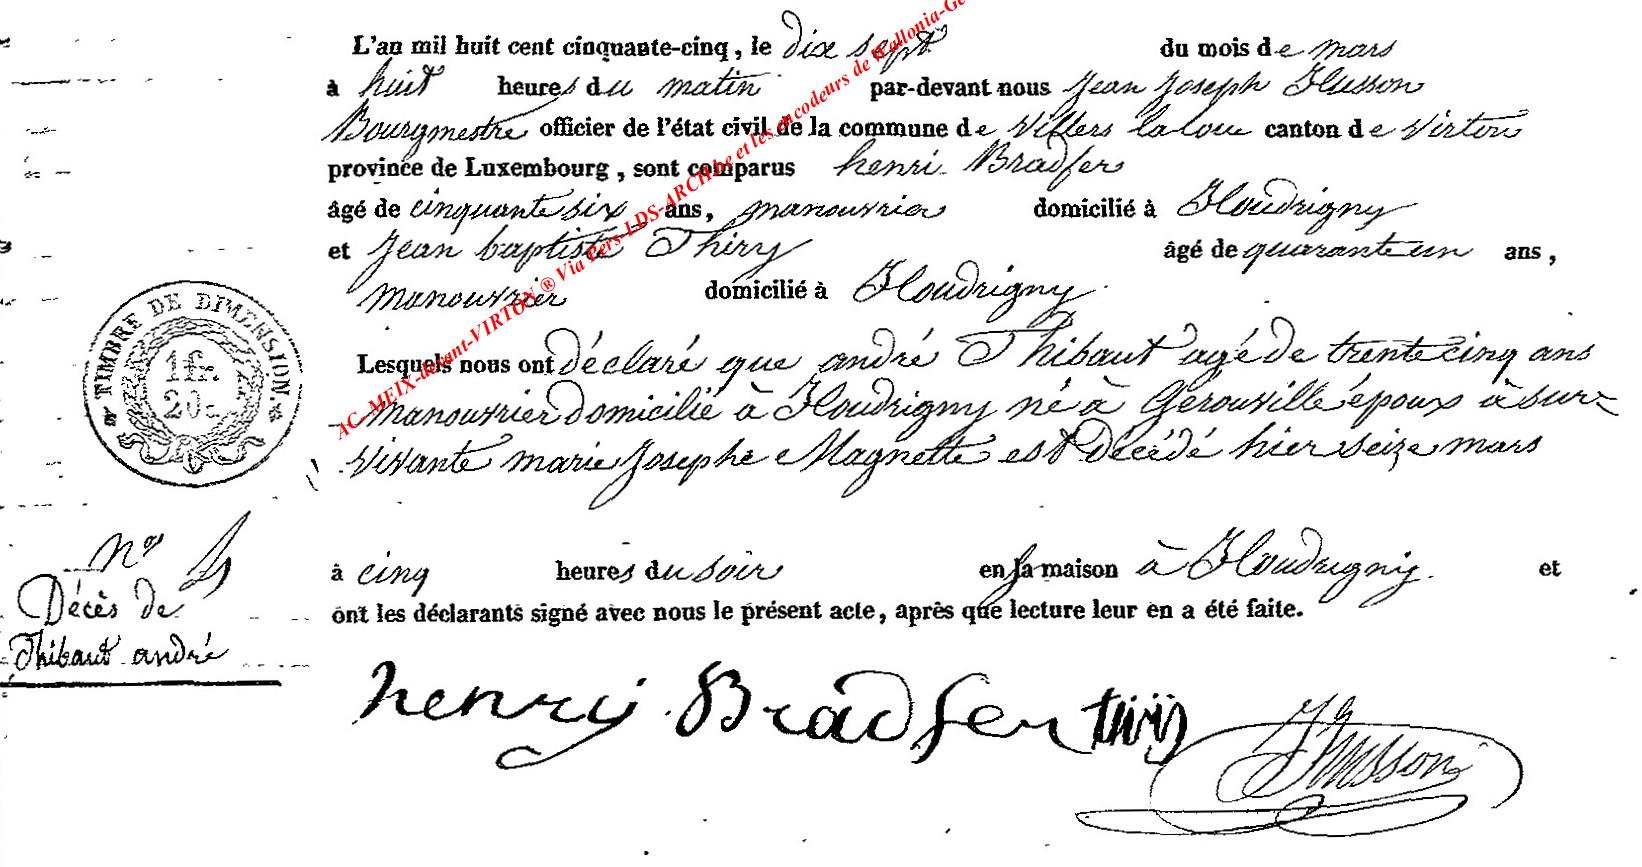 L'an mil huit cent cinquante-cinq, le dix sept du mois de mars
à huit heures du matin par-devant nous Jean Joseph Husson
Bourgmestre officier de l'état civil de la commune de Villers la loue canton de Virton
province de Luxembourg, sont comparus henri Bradfer
âgé de cinquante six ans, manouvrier domicilié à Houdrigny
et Jean baptiste Thiry âgé de quarante un ans,
manouvrier domicilié à Houdrigny.
Lesquels nous ont déclaré que andré Thibaut agé de trente cinq ans
manouvrier domicilié à Houdrigny né à Gerouville époux à sur-
vivante marie Josephe Magnette est décédé hier seize mars
à cinq heures du soir en sa maison à Houdrigny. et
ont les déclarants signé avec nous le présent acte, après que lecture leur en a été faite.
TIMBRE DE DIMENSION.
1 fr.
20 c.
No 4
Décès de
Thibaut andré
henry Bradfer
JHusson
AC-MEIX-devant-VIRTON ® Via Pers-LDS-ARCH.be et les encodeurs de Wallonia-Ge